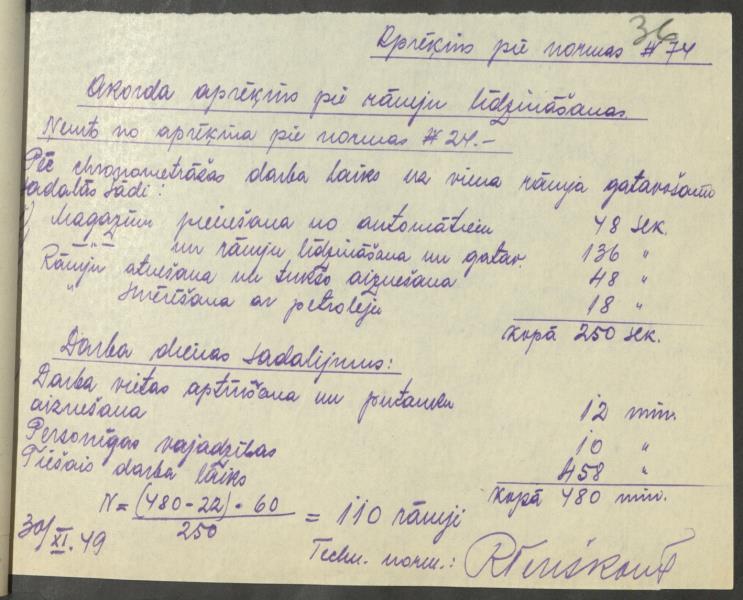 36
Aprēķins pie normas # 74
Akorda aprēķins pie rāmju līdzināšanas
Ņemts no aprēķina pie normas # 24.-
Pēc chronometrāžas darba laiks uz viena rāmja gatavošanu
sadalās šādi:
1) Magazīnu pienešana no automātiem 48 sek.
" un rāmju līdzināšana un gatav. 136 "
Rāmju atnešana un tukšo aiznešana 48 "
" smērēšana ar petroleju 18 "
Kopā 250 sek.
Darba dienas sadalijums:
Darba vietas aptīrīšana un
aiznešana 12 min.
Personīgas vajadzības 10 "
Tiešais darba laiks 458 "
Kopā 480 min.
N = (480-22) • 60 / 250 = 110 rāmji
30/XI.49
Techn. norm.: